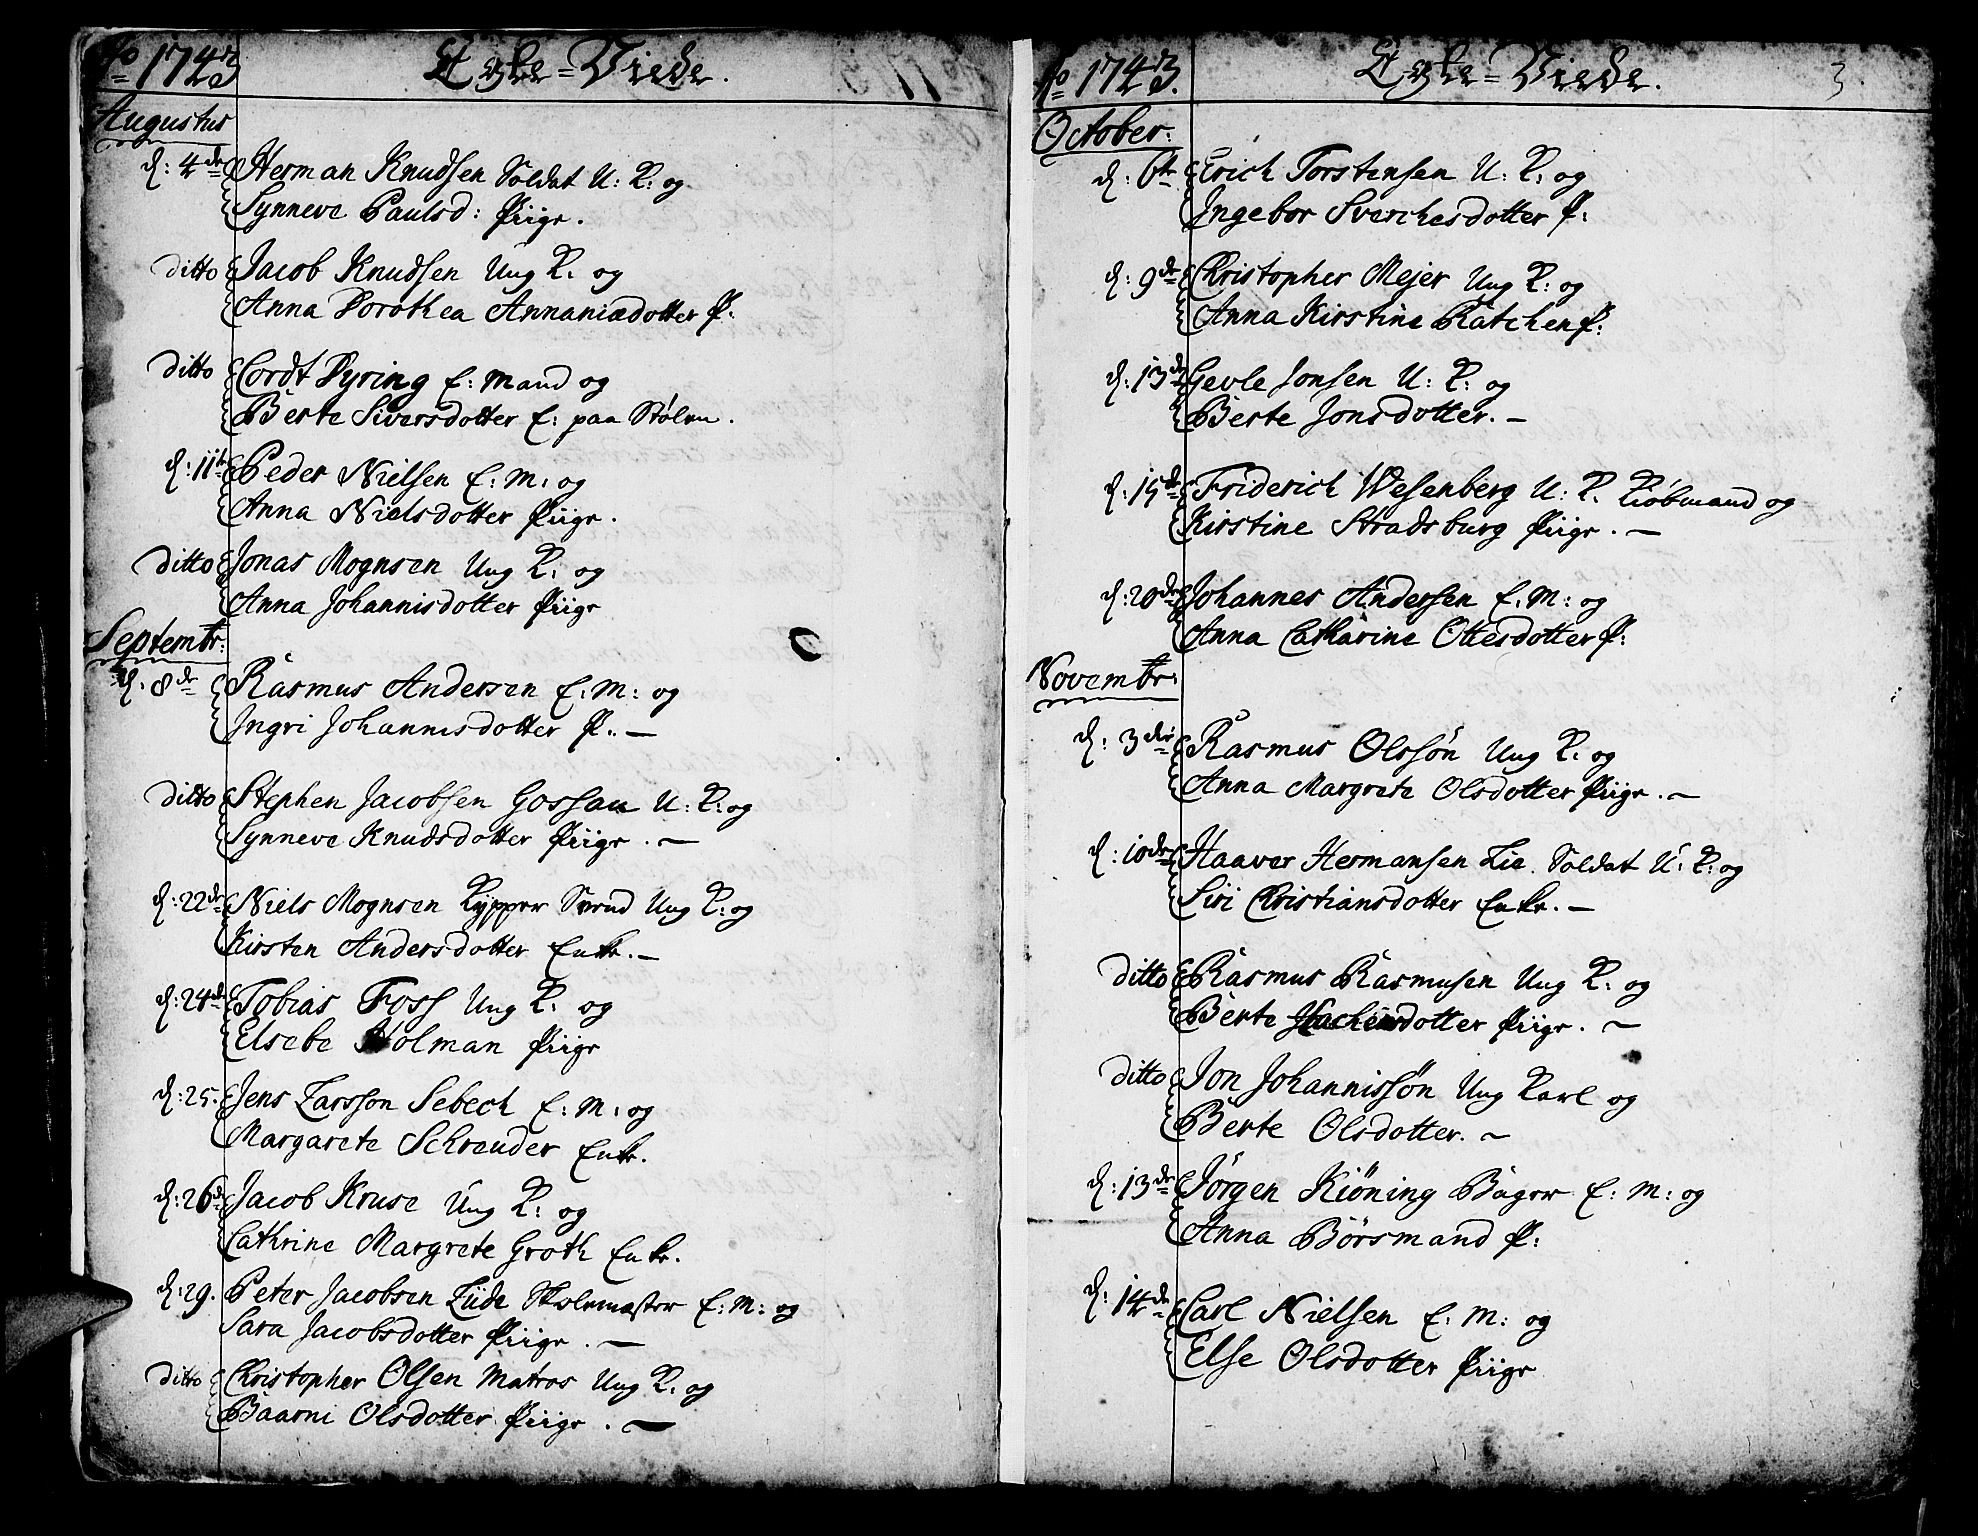 Ao 1743 Ægte=Viede.
Augustus
d: 4de Herman Knudsen Soldat U: K: og
Synneve Paulsd: Piige.
ditto Jacob Knudsen Ung K. og
Anna Dorothea Annaniædotter P.
ditto Cordt Dyring E: Mand og
Berte Siversdotter E: paa Stølen.
d: 11te Peder Nielsen E: M: og
Anna Nielsdotter Piige.
ditto Jonas Mognsen Ung K: og
Anna Johannisdotter Piige
Septembr:
d. 8de Rasmus Andersen E: M: og
Ingri Johannisdotter P. —
ditto Stephen Jacobsen Gossau U: K: og
Synneve Knudsdotter Piige. —
d: 22de Niels Mognsen Kypper Svend Ung K: og
Kirsten Andersdotter Enke. —
d: 24de Tobias Foss Ung K. og
Elsebe Holman Piige
d: 25. Jens Larsson Sebech E: M: og
Margarete Schreuder Enke.
d: 26de Jacob Kruse Ung K: og
Cathrine Margrete Groth Enke.
d: 29. Peter Jacobsen Lüde Skolemæster E: M: og
Sara Jacobsdotter Piige. —
ditto Christopher Olsen Matros Ung K. og
Baarni Olsdotter Piige. —
Ao 1743. Ægte=Viede. 3
October:
d: 6te Erich Torstensen U: K: og
Ingebor Sverchesdotter P:
d: 9de Christopher Mejer Ung K: og
Anna Kirstine Ratchen P:
d: 13de Gevle Jonsen U: K: og
Berte Jonsdotter. —
d: 15de Friderich Wesenberg U: K. Kiøbmand og
Kirstine Stradsburg Piige. —
d: 20de Johannes Andersen E: M: og
Anna Catharine Ottesdotter P:
Novembr:
d: 3die Rasmus Olssøn Ung K. og
Anna Margrete Olsdotter Piige. —
d: 10de Haaver Hermansen Lie. Soldat U: K: og
Siri Christiansdotter Enke. —
ditto Rasmus Rasmusen Ung K: og
Berte Hachensdotter Piige. —
ditto Jon Johannissøn Ung Karl og
Berte Olsdotter. —
d: 13de Jørgen Kiøning Bager E: M: og
Anna Børsmand P:
d: 14de Carl Nielsen E: M: og
Else Olsdotter Piige